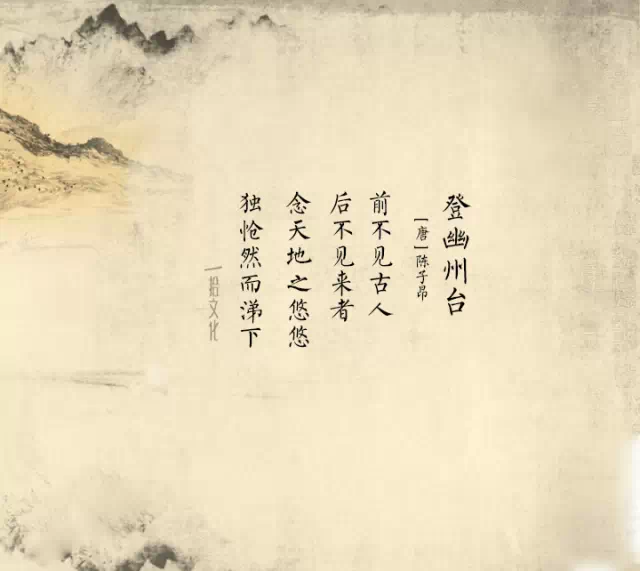 登幽州台
[唐]陈子昂
前不见古人
后不见来者
念天地之悠悠
独怆然而涕下
一拾文化